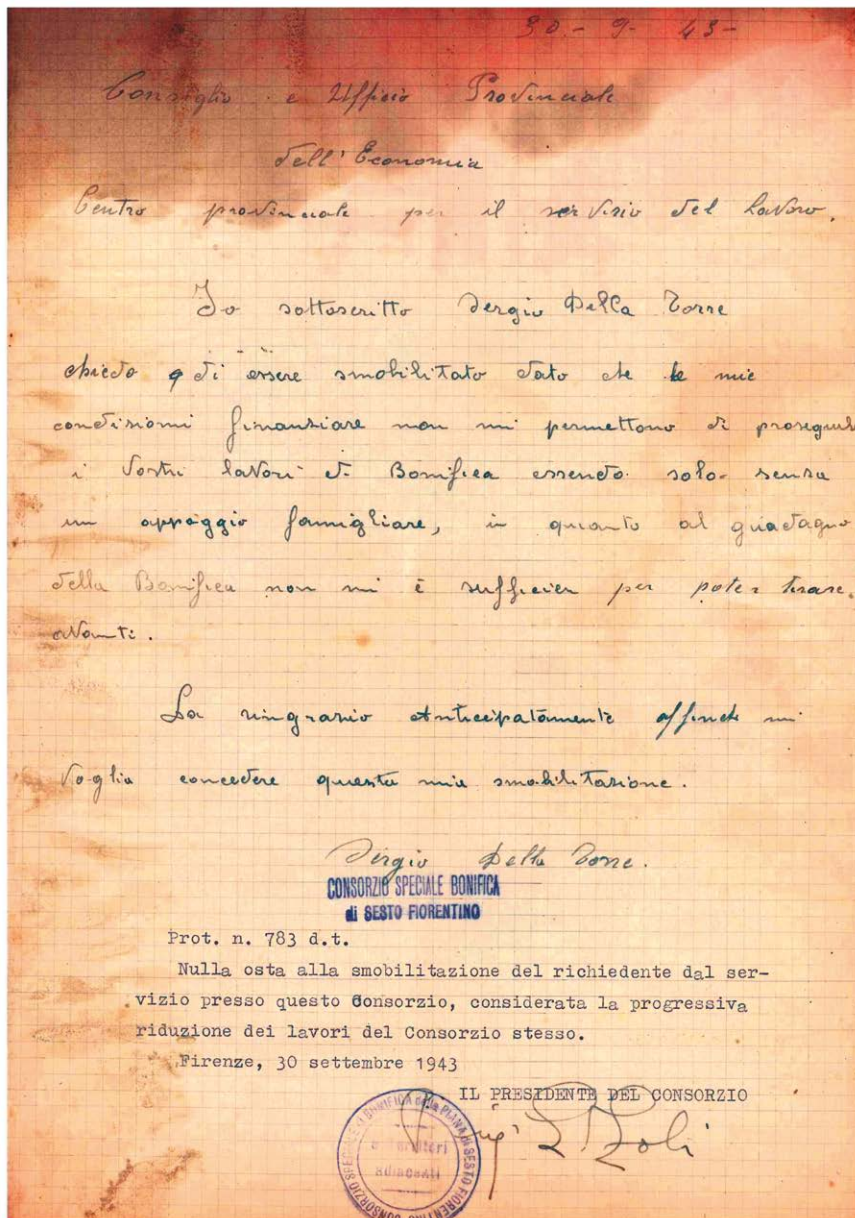 30 - 9 - 43 -
Consiglio e Ufficio Provinciale
dell' Economia
Centro provinciale per il servizio del Lavoro.
Io sottoscritto Sergio Della Torre
chiedo di essere smobilitato dato che le mie
condizioni finanziare non mi permettono di proseguire
i vostri lavori di Bonifica essendo solo senza
un appoggio famigliare, in quanto al guadagno
della Bonifica non mi è sufficien per poter tirare
avanti.
La ringrazio anticipatamente affinche mi
voglia concedere questa mia smobilitazione.
Sergio Della Torre.
CONSORZIO SPECIALE BONIFICA
di SESTO FIORENTINO
Prot. n. 783 d.t.
Nulla osta alla smobilitazione del richiedente dal ser-
vizio presso questo Consorzio, considerata la progressiva
riduzione dei lavori del Consorzio stesso.
Firenze, 30 settembre 1943
IL PRESIDENTE DEL CONSORZIO
CONSORZIO SPECIALE DI BONIFICA della PIANA DI SESTO FIORENTINO
e territori
adiacenti